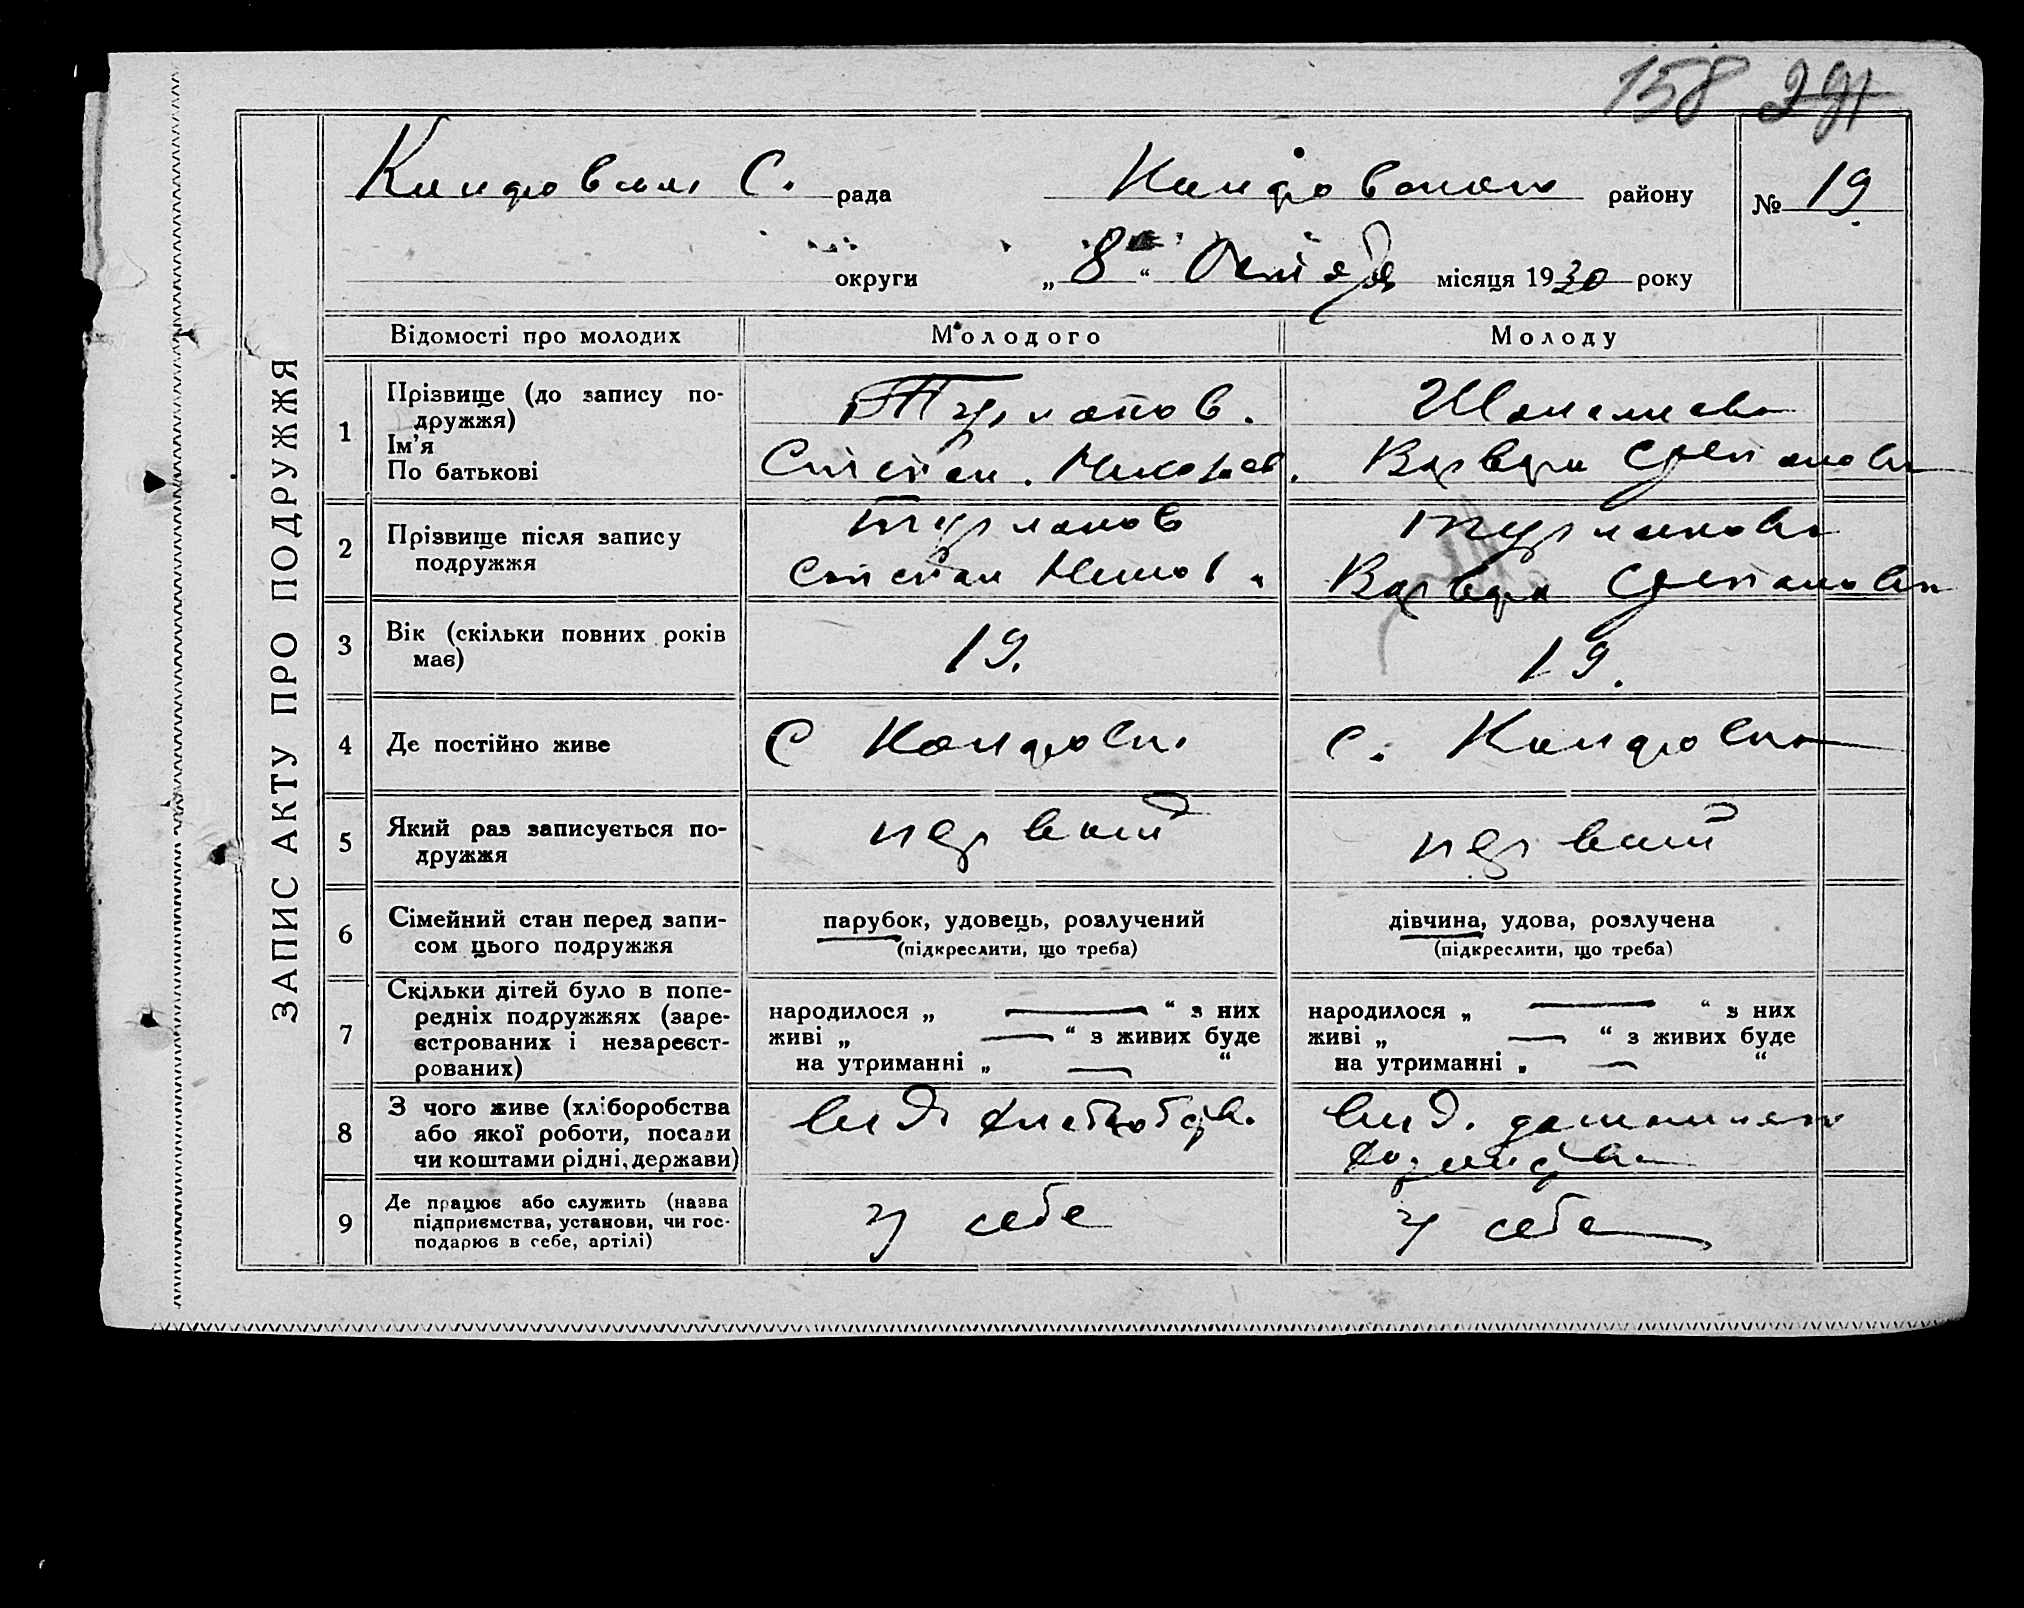 158 291
С. рада району № 19
округи „ 8 “ Октября місяця 1930 року
ЗАПИС АКТУ ПРО ПОДРУЖЖЯ
Відомості про молодих Молодого Молоду
1 Прізвище (до запису по-
дружжя)
Ім’я
По батькові
Степан Варвара Степановна
2 Прізвище після запису
подружжя
Степан Варвара Степановна
3 Вік (скільки повних років
має)
19. 19.
4 Де постійно живе
С с.
5 Який раз записується по-
дружжя
первый первый
6 Сімейний стан перед запи-
сом цього подружжя
парубок, удовець, розлучений
(підкреслити, що треба)
дівчина, удова, розлучена
(підкреслити, що треба)
7 Скільки дітей було в попе-
редніх подружжях (заре-
єстрованих і незареєст-
рованих)
народилося „ — “ з них
живі „ — “ з живих буде
на утриманні „ — “
народилося „ — “ з них
живі „ — “ з живих буде
на утриманні „ — “
8 З чого живе (хліборобства
або якої роботи, посади
чи коштами рідні, держави)
9 Де працює або служить (назва
підприємства, установи, чи гос-
подарює в себе, артілі)
у себе у себе